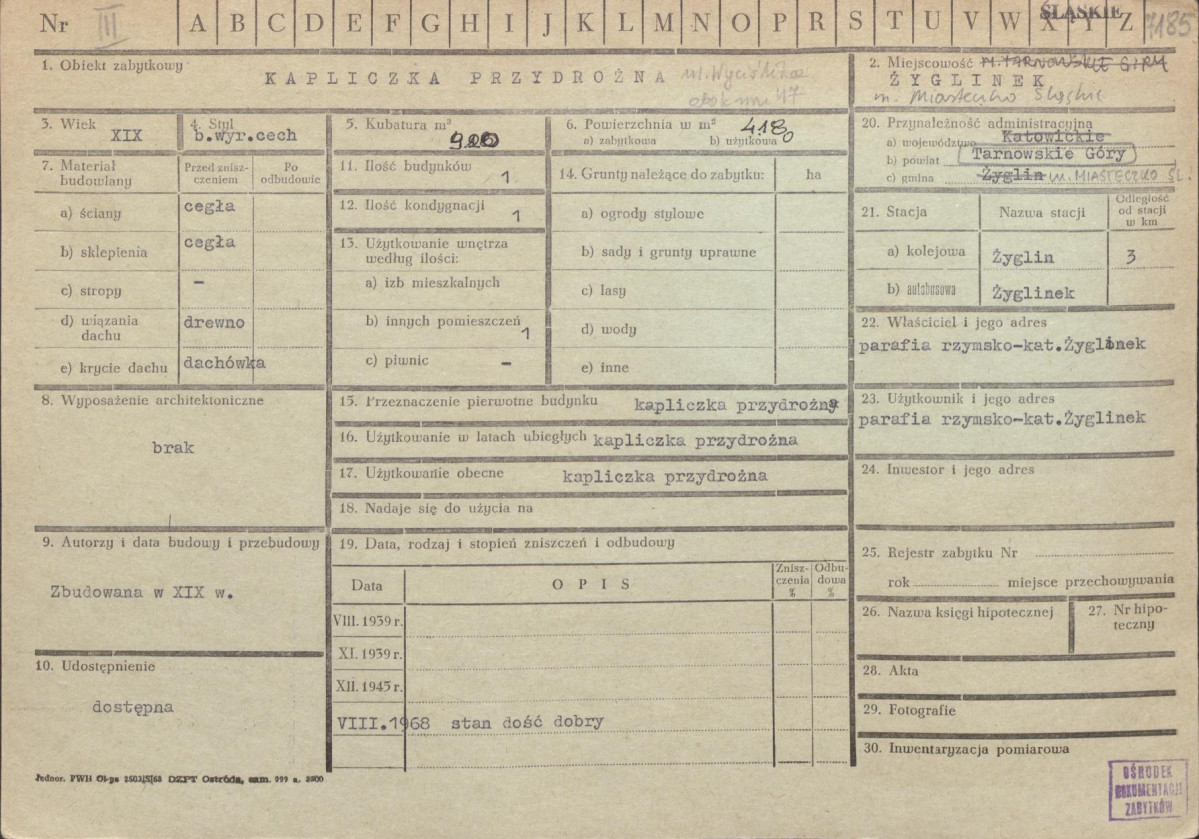 Nr III A B C D E F G H I J K L M N O P R S T U V W X Y Z ŚLĄSKIE 7185
1. Obiekt zabytkowy
KAPLICZKA PRZYDROŻNA ul.
obok nru 47
2. Miejscowość M. TARNOWSKIE GÓRY
ŻYGLINEK
m. Miasteczko Śląskie
3. Wiek
XIX
4. Styl
b.wyr.cech
5. Kubatura m³
6. Powierzchnia w m²
a) zabytkowa b) użytkowa
7. Materiał budowlany
Przed znisz-
czeniem
Po
odbudowie
a) ściany cegła
b) sklepienia cegła
c) stropy –
d) wiązania
dachu drewno
e) krycie dachu dachówka
8. Wyposażenie architektoniczne
brak
9. Autorzy i data budowy i przebudowy
Zbudowana w XIX w.
10. Udostępnienie
dostępna
11. Ilość budynków 1
12. Ilość kondygnacji 1
13. Użytkowanie wnętrza
według ilości:
a) izb mieszkalnych
b) innych pomieszczeń 1
c) piwnic –
14. Grunty należące do zabytku: ha
a) ogrody stylowe
b) sady i grunty uprawne
c) lasy
d) wody
e) inne
15. Przeznaczenie pierwotne budynku kapliczka przydrożna
16. Użytkowanie w latach ubiegłych kapliczka przydrożna
17. Użytkowanie obecne kapliczka przydrożna
18. Nadaje się do użycia na
19. Data, rodzaj i stopień zniszczeń i odbudowy
Data OPIS
Znisz-
czenia
%
Odbu-
dowa
%
VIII. 1939 r.
XI. 1939 r.
XII. 1945 r.
VIII.1968 stan dość dobry
20. Przynależność administracyjna
a) województwo Katowickie
b) powiat Tarnowskie Góry
c) gmina Żyglin m. MIASTECZKO ŚL.
21. Stacja Nazwa stacji
Odległość
od stacji
w km
a) kolejowa Żyglin 3
b) autobusowa Żyglinek
22. Właściciel i jego adres
parafia rzymsko-kat.Żyglinek
23. Użytkownik i jego adres
parafia rzymsko-kat.Żyglinek
24. Inwestor i jego adres
25. Rejestr zabytku Nr
rok miejsce przechowywania
26. Nazwa księgi hipotecznej
27. Nr hipo-
teczny
28. Akta
29. Fotografie
30. Inwentaryzacja pomiarowa
OŚRODEK
DOKUMENTACJI
ZABYTKÓW